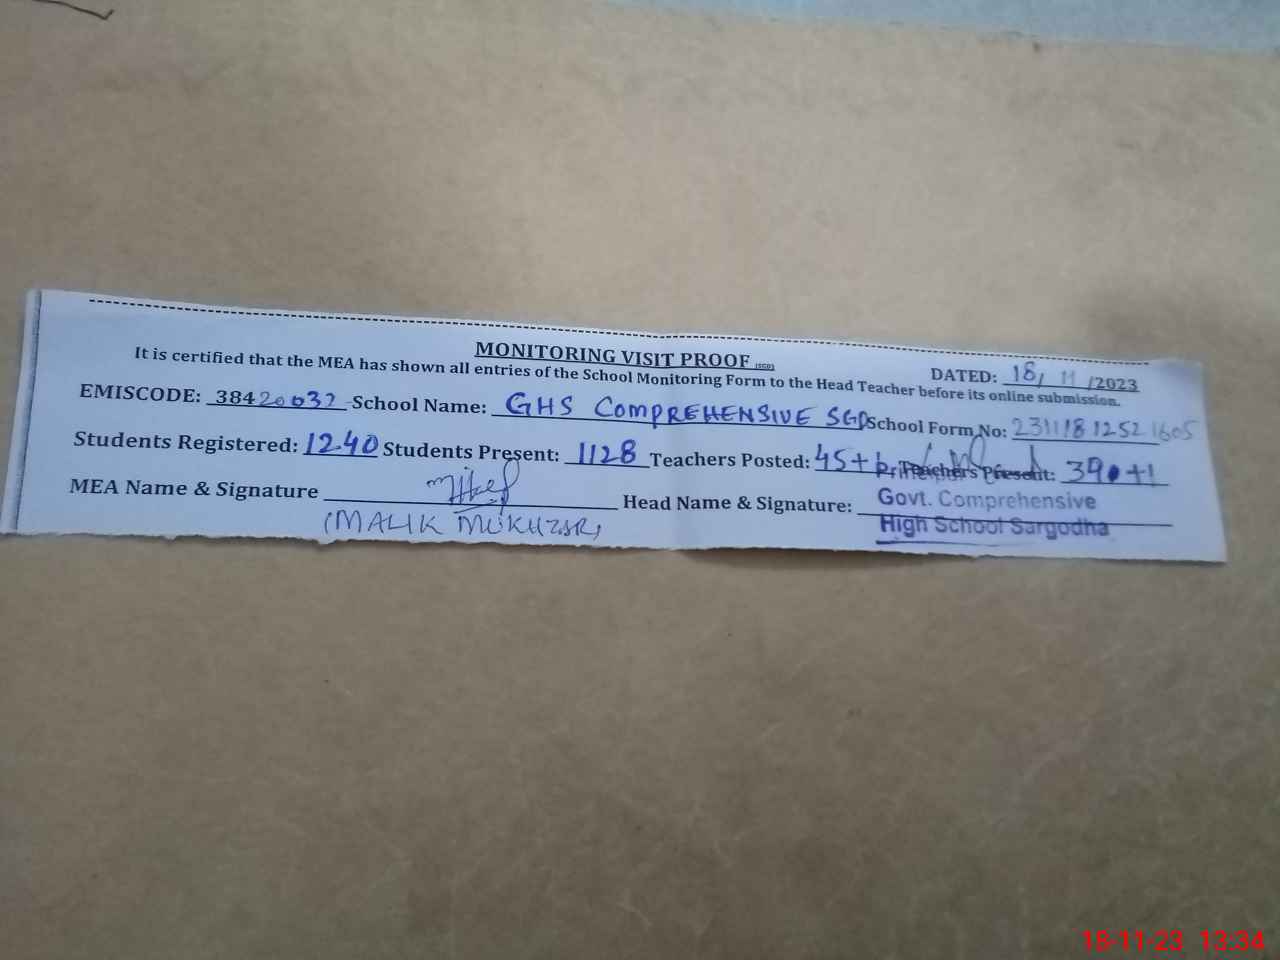 MONITORING VISIT PROOF (SGD)
DATED: 18/11/2023
It is certified that the MEA has shown all entries of the School Monitoring Form to the Head Teacher before its online submission.
EMISCODE: 38420032 School Name: GHS COMPREHENSIVE SGD School Form No: 2311181252 1605
Students Registered: 1240 Students Present: 1128 Teachers Posted: 45+ Teachers Present: 39+1
MEA Name & Signature Head Name & Signature:
(MALIK MUKHZAR)
Principal
Govt. Comprehensive
High School Sargodha
18-11-23 13:34